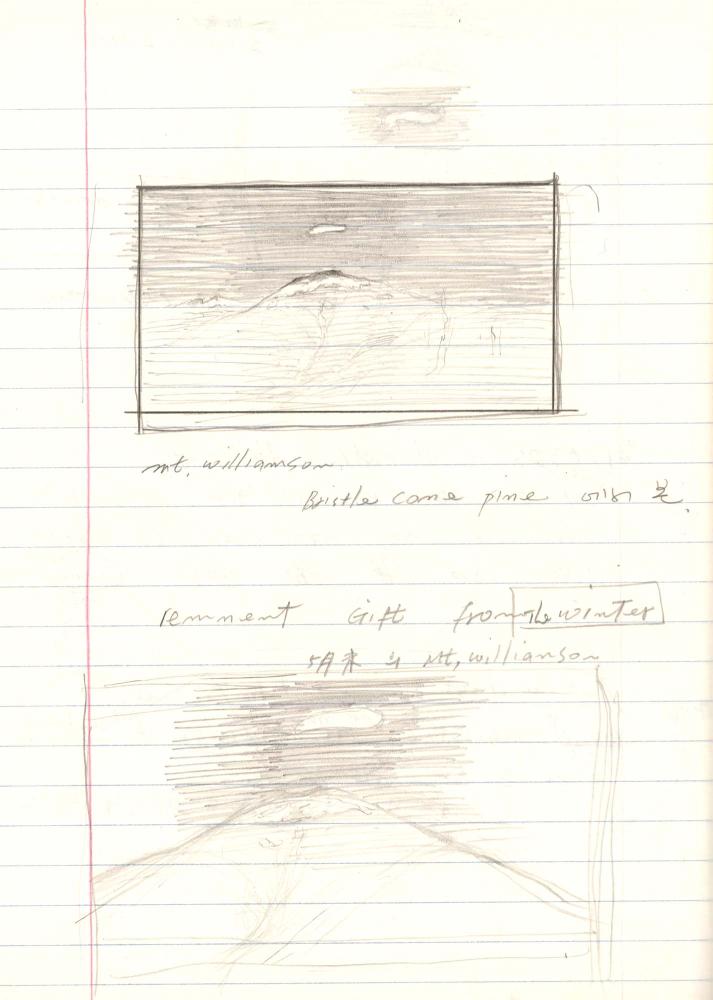 mt. williamson
Bristle cone pine 에서 본.
remnent Gift from The winter
5月末 Mt, williamson